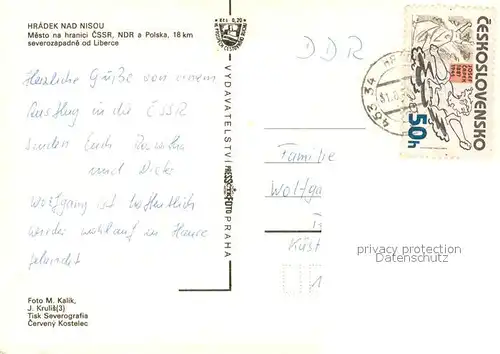 HRÁDEK NAD NISOU
Město na hranici ČSSR, NDR a Polska, 18 km
severozápadně od Liberce
Kčs 0,20
DDR
ČESKOSLOVENSKO
50h
463 34
Herzliche Grüße von einem
Ausflug in die ČSSR
senden Euch
und Dieter
Wolfgang ist hoffentlich
wieder wohlauf im Hause
gelandet
VYDAVATELSTVÍ PRESSFOTO PRAHA
Familie
Wolfga
Küst
privacy protection
Datenschutz
Foto M. Kalík,
J. Kruliš(3)
Tisk Severografia
Červený Kostelec